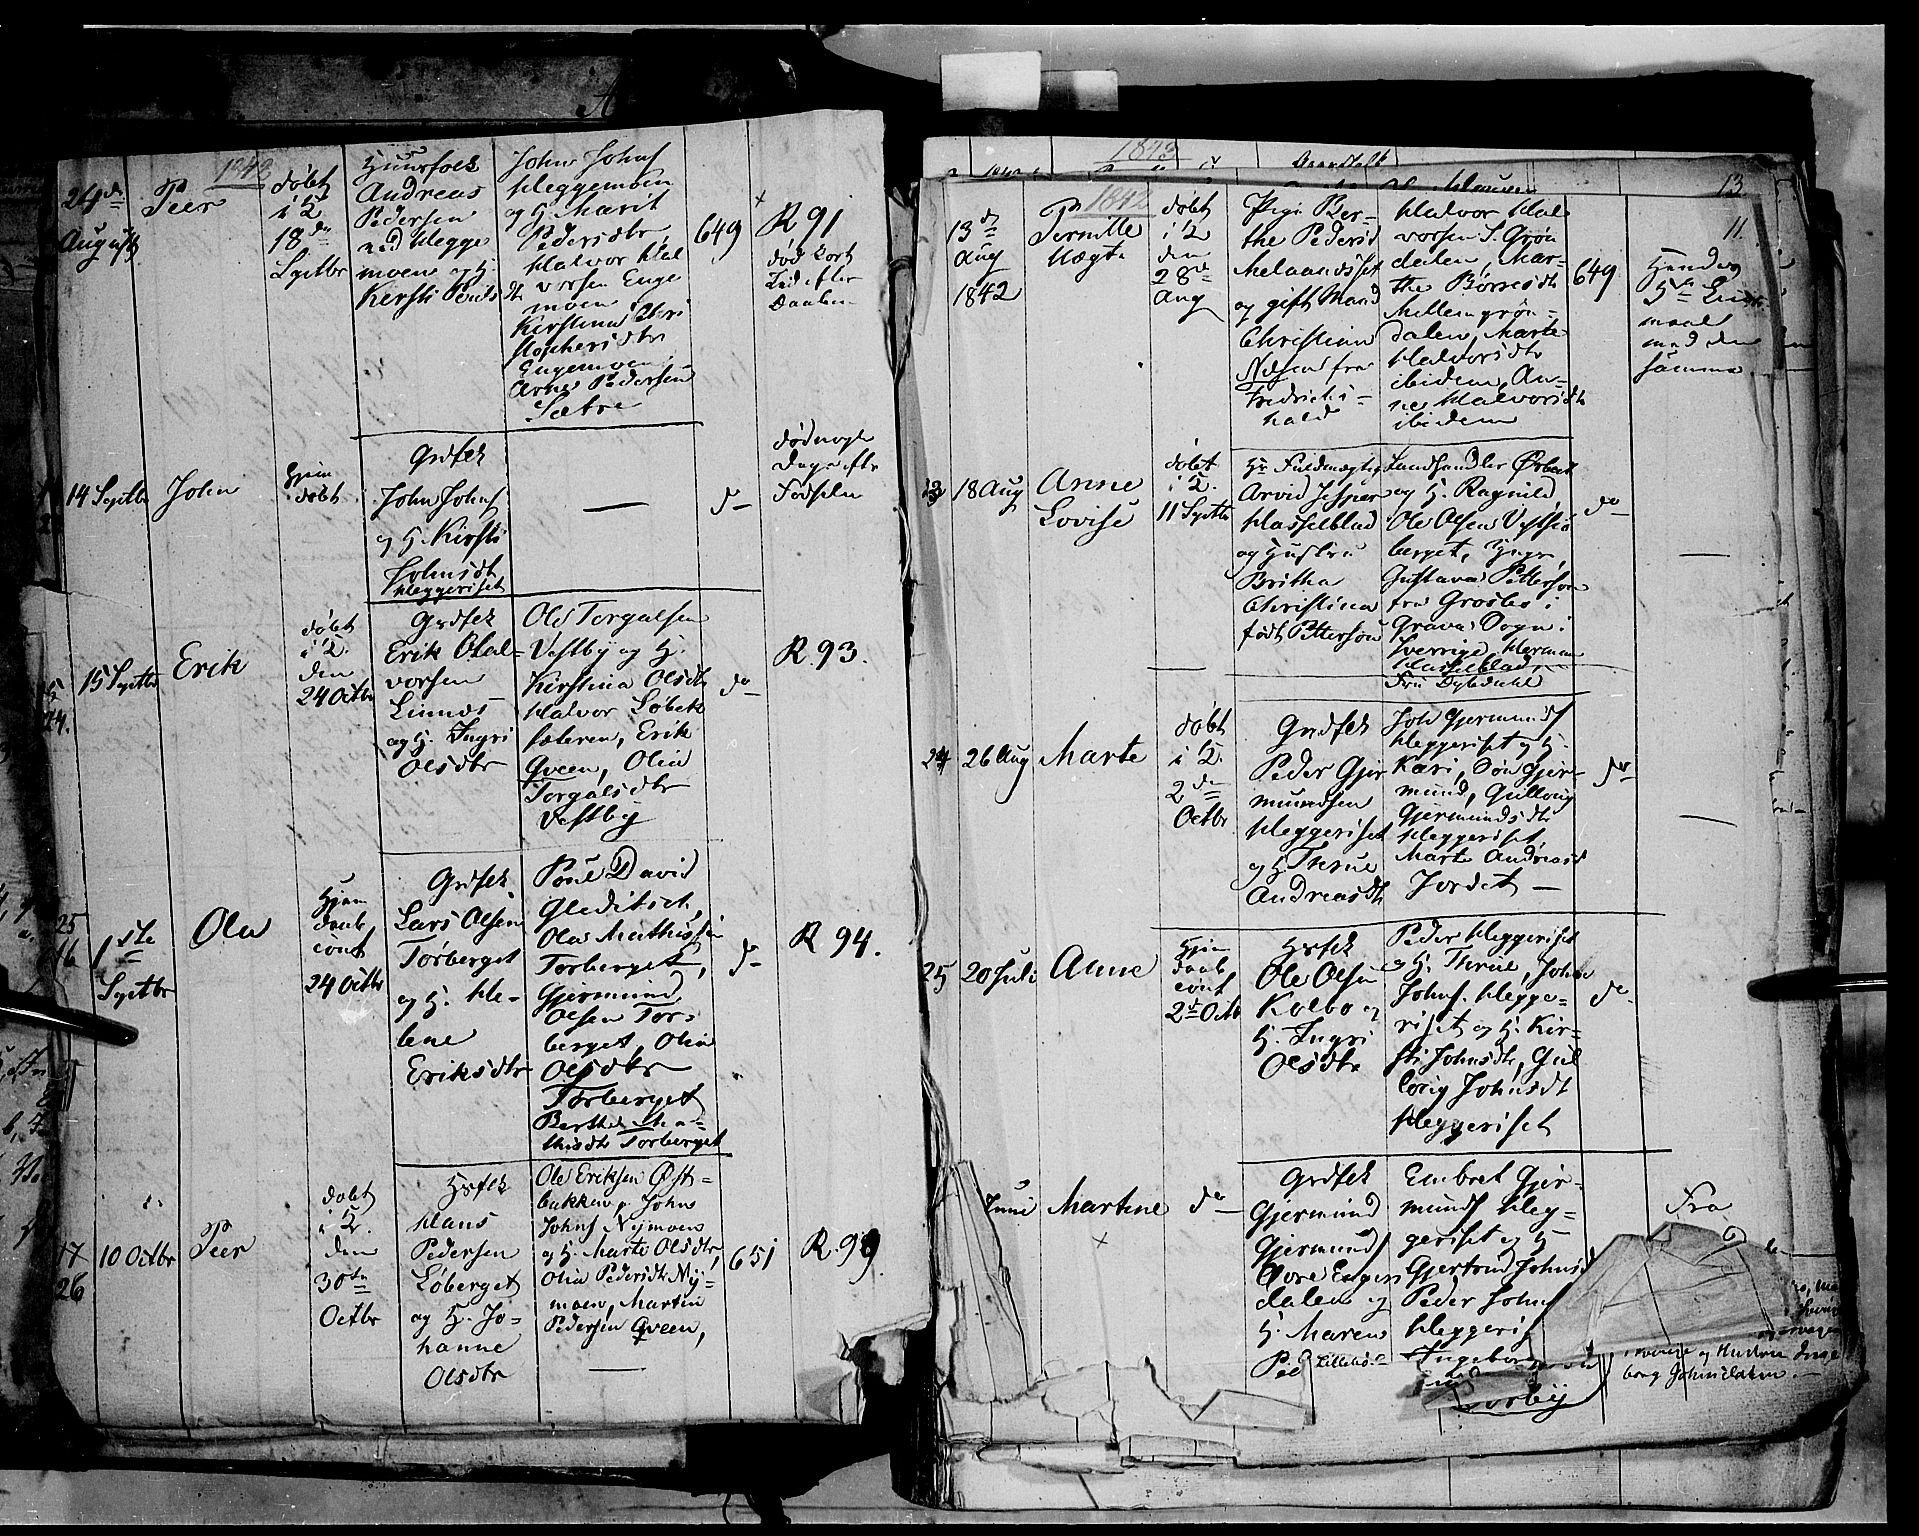 1842
24de
August
Peer
døbt
i K.
18de
Septbr
Huusfolk
Andreas
Pedersen
ned Hegge
moen og H.
Kersti Peersd
John Johns
Heggemoen
og H. Marit
Pedersdtr
Halvor Hal
vorsen Enge
moen
Kirstina Chri
stophersdtr
Engemoen
Arne Pedersen
Sætre
649
R 91
død kort
Tid efter
Daaben
14 Septbr
John
Hjem
døbt
Grdfolk
John Johns
og H. Kirsti
Johnsdt
Heggeriset
—
do
død nogle
Dage eftr
Fødselen
24.
15 Septbr
Erik
døbt
i K.
den
24 Octbr
Grdfolk
Erik Olal-
vorsen
Linnes
og H. Ingri
Olsdtr
Ole Torgalsen
Vestby og H.
Kirstina Olsdtr
Halvor Løbek
sæteren, Erik
Qveen, Olia
Torgalsdtr
Vestby
do
R. 93.
25
16
1ste
Septbr
Ola
Hjem
daab
conf
24 Octbr
Grdfolk
Lars Olsen
Torberget
og H. He-
lene
Eriksdtr
Poul David
Gleditsch,
Ola Mathissen
Torberget,
Gjermund
Olsen Tor-
berget, Olia
Olsdtr
Torberget
Berthe Ma-
thisdtr Torberget
do
R 94.
17
26
10 Octbr
Peer
døbt
i K.
den
30te
Octbr
Hsfolk
Hans
Pedersen
Løberget
og H. Jo-
hanne
Olsdtr
Ole Eriksen Øst-
bakken, John
Johns Nymoen
og H. Marte Olsdtr,
Olia Pedersdtr Ny-
moen, Martin
Pedersen Qveen,
—
651
R. 99
1843
1842
13
11.
13de
Aug
1842
Pernille
Uægte
døbt
i K
den
28de
Aug
Pige Ber-
the Pedersd
Melaandsset
og gift Mand
Christian
Næsen fra
Fredriks-
hald
Halvor Hal
vorsen S. Grøn
dalen, Mar-
the Børresdtr
Mellemgrøn-
dalen, Marte
Halvorsdtr
ibidem, An-
ne Halvorsdtr
ibidem
649
Hendes
5te Leier-
maal
med den
samme
18 Aug
Anne
Lovise
døbt
i K.
11 Septbr
Hr Fuldmægtig
Arvid Jesper
Hasselblad
og Hustru
Britha
Christina
født Petterson
Landhandler Ørbæk
og H. Ragnild,
Ole Olsen Vestsjø
berget, Hngr,
Gustava Petterson
fra Grosbo i
Grava Sogn i
Sverrige, Herman
Hasselblad,
Fru Dybdahl
do
—
24
26 Aug
Marte
døbt
i K.
2den
Octbr
Grdfolk
Peder Gjer
mundsen
Heggeriset
og H. Thrue
Andreasdtr
Joh Gjermunds
Heggeriset og H.
Kari, Søn Gjer-
mund, Gullovig
Gjermundsdtr
Heggeriset
Marte Andreasd
Jordet —
do
—
25
20 Juli
Anne
Hjem
daab
conf
2d Octb
Hsfolk
Ole Olsen
Kolbo og
H. Ingri
Olsdtr
Peder Heggeriset
og H. Thrue, John
Johns. Hegge-
riset og H. Kir-
sti Johnsdtr, Gul
lovig Johnsdt
Heggeriset
do
Juni
Martine
do
Grdfolk
Gjermund
Gjermunds
Øvre Enger
dalen og
H. Maren
Ped
Lillebo
Embret Gjer-
munds Heg-
geriset og H
Gjertrud Johnsd
Peder Johns
Heggeris
Ingebor
Sorby
Fra
og Hustru Inge
borg Johnsdatter.—